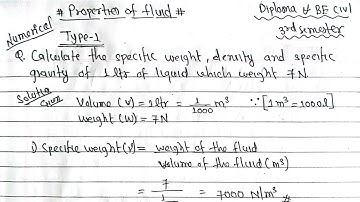 # Properties of fluid #
Diploma & BE (CIV)
3rd semester
Numerical
Type-1
Q. Calculate the specific weight, density and specific
gravity of 1 ltr of liquid which weight 7N
Solution
Given
Volume (v) = 1 ltr = 1/1000 m³ ∵ [1m³ = 1000l]
weight (W) = 7N
i) Specific weight (γ) = weight of the fluid / volume of the fluid (m³)
= 7/1 = 7000 N/m³ #